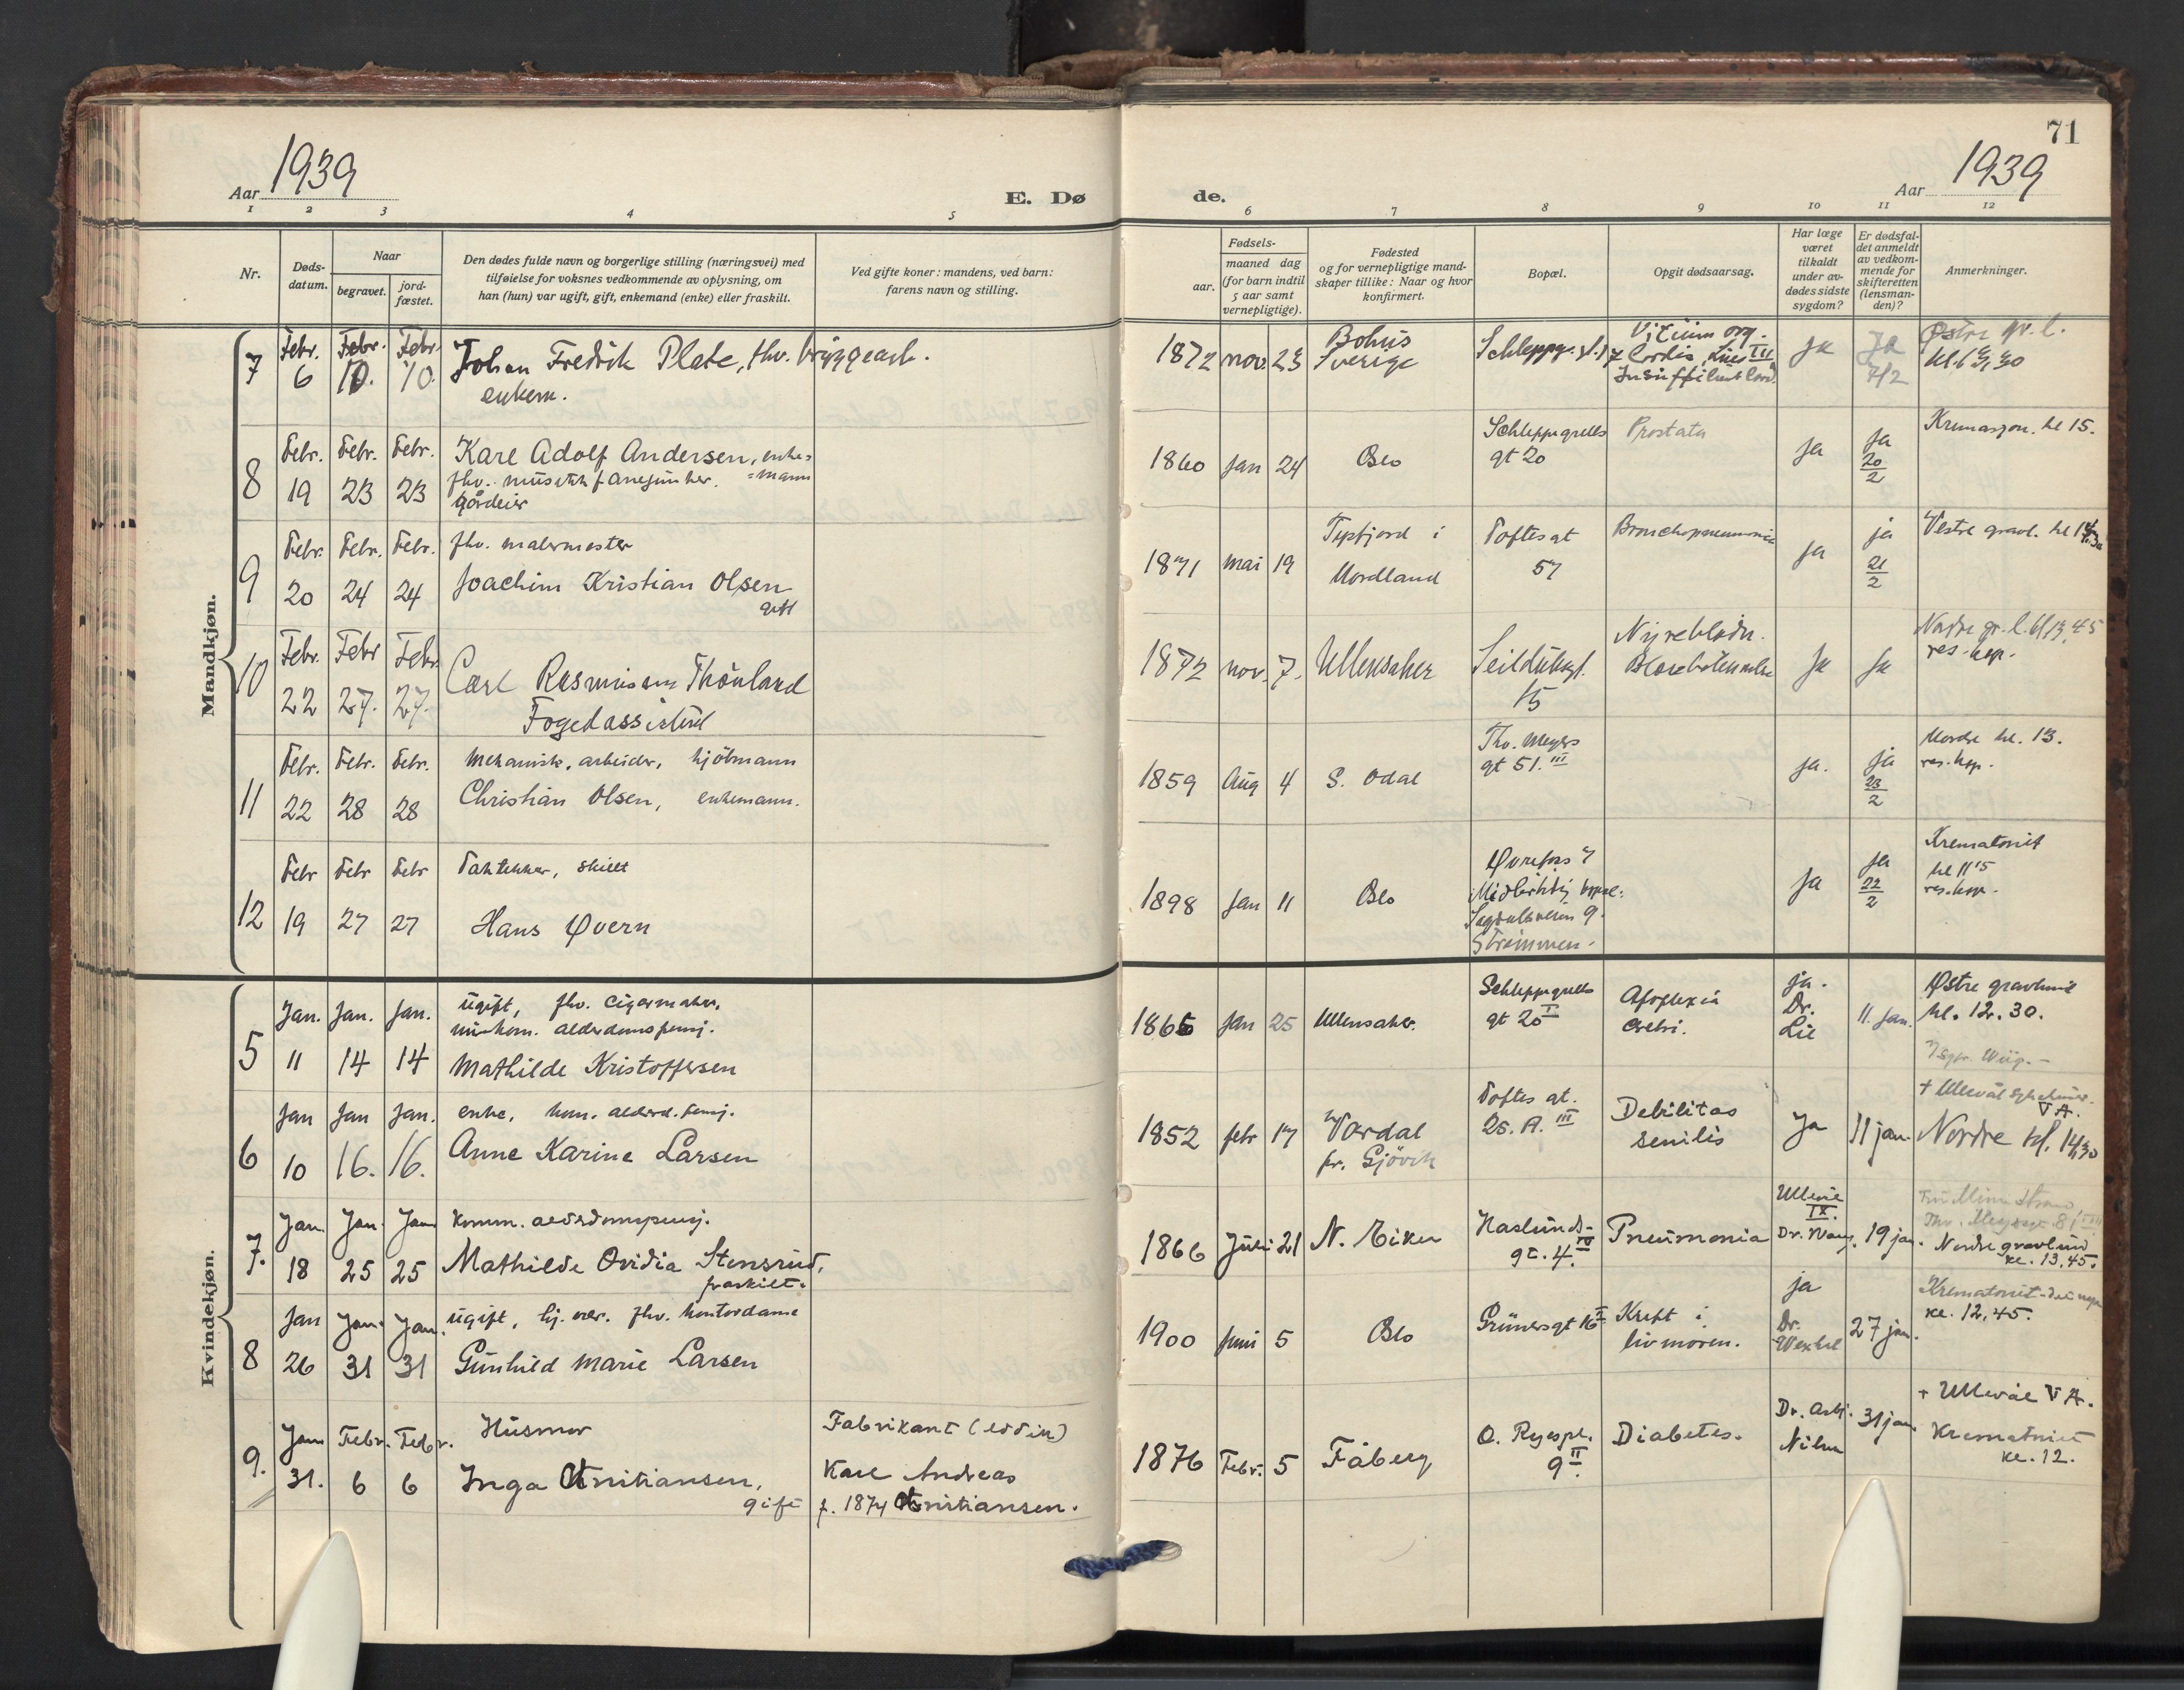 71
Aar 1939
E. Dø
de.
Aar 1939
1 2 3 4 5 6 7 8 9 10 11 12
Nr.
Døds-
datum.
Naar
begravet.
jord-
fæstet.
Den dødes fulde navn og borgerlige stilling (næringsvei) med
tilføielse for voksnes vedkommende av oplysning, om
han (hun) var ugift, gift, enkemand (enke) eller fraskilt.
Ved gifte koner: mandens, ved barn:
farens navn og stilling.
Fødsels-
aar.
maaned dag
(for barn indtil
5 aar samt
vernepligtige).
Fødested
og for vernepligtige mand-
skaper tillike: Naar og hvor
konfirmert.
Bopæl.
Opgit dødsaarsag.
Har læge
været
tilkaldt
under av-
dødes sidste
sygdom?
Er dødsfal-
det anmeldt
av vedkom-
mende for
skifteretten
(lensman-
den)?
Anmerkninger.
Mandkjøn.
7
Febr. 6
Febr. 10.
Febr. 10.
Johan Fredrik Plate, fhv. bryggearb.
enkem.
1872 nov. 23
Bohus
Sverige
Schleppgr. gt. 17
Vitium org.
Cordis, Lues III
Ja
Ja
7/2
Østre gr. l.
8
Febr. 19
Febr. 23
Febr. 23
Karl Adolf Andersen, enke-
fhv. musikkfanejunker. =mann
gårdeier
1860 Jan 24
Oslo
Schleppegrells
gt 20
Prostata
Ja
Ja
20/2
Kremasjon. kl 15.
9
Febr. 20
Febr. 24
Febr. 24
fhv. malermester
Joachim Kristian Olsen
gift
1871 mai 19
Tysfjord i
Nordland
Toftes gt
57
Bronchopneumonia
Ja
ja
21/2
Vestre gravl. kl 14.30
10
Febr. 22
Febr 27.
Febr. 27.
Carl Rasmussen Thönland
Fogedassistent
1872 nov. 7.
Ullensaker
Seilduksgt.
15
Nyreblødn.
Ja
Ja
Nordre gr. l. kl 13,45
res. kap.
11
Febr. 22
Febr. 28
Febr. 28
Mekanisk. arbeider, kjöbmann
Christian Olsen, enkemann.
1859 Aug 4
S. Odal
Thv. Meyers
gt 51. III
ja.
ja
23/2
Nordre kl. 13.
res. kap.
12
Febr 19
Febr 27
Febr 27
Taktekker, skilt
Hans Qvern
1898 Jan 11
Oslo
Øvrefoss 7
Midlertidig bopæl:
Sagdalsveien 9.
Strømmen.
Ja
Ja
22/2
Krematoriet
kl 11 15
res. kap.
Kvindekjøn.
5
Jan. 11
Jan. 14
Jan. 14
ugift, fhv. cigarmaker,
alderdomspensj.
Mathilde Kristoffersen
1865 Jan 25
Ullensaker.
Schleppegrells
gt 20 I
Apoplexia
cerebri.
ja.
Dr.
Lie
11. Jan.
Østre gravlund
kl. 12.30.
6
Jan 10
Jan 16.
Jan. 16.
enke, kom. alderd. pensj.
Anne Karine Larsen
1852 febr 17
Vardal
pr. Gjövik
Toftes gt.
25. A. III
Debilitas
senilis
Ja
11 jan.
+ Ullevål sykehus
V A.
Nordre kl. 14,30
7.
Jan. 18
Jan. 25
Jan 25
Komm. alderdomspensj.
Mathilde Ovidia Stensrud,
fraskilt.
1866 Juli 21
N. Eiker
Haslunds-
gt. 4. IV
Pneumonia
Ullevål
IX.
19 jan.
Nordre gravlund
kl. 13,45.
8
Jan 26
Jan. 31
Jan. 31
ugift, hj. vær. fhv. kontordame
Gunhild Marie Larsen
1900 Juni 5
Oslo
Grünersgt 16 II
Kreft i
livmoren.
ja
Dr.
Wexhel
27 jan.
Krematoriet
kl. 12,45.
9.
Jan 31.
Febr. 6
Febr. 6
Husmor
Inga Kristiansen,
gift
Fabrikant (eddik)
Karl Andreas
f. 1874 Kristiansen.
1876 Febr. 5
Fåberg
O. Ryespl.
9 II.
Diabetes.
31 jan.
+ Ullevål V A.
Krematoriet
kl. 12.